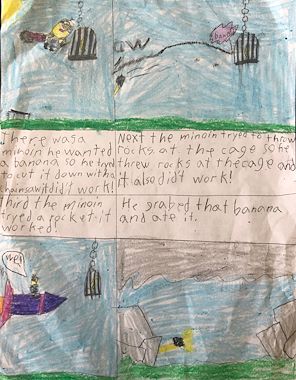 aw
bana
There was a
minoin he wanted
a banana so he tryed
to cut it down with a
chainsaw it did't work!
Next the minoin tryed to throw
rocks at the cage so he
threw rocks at the cage and
it also did't work!
Third the minoin
tryed a rocket. it
worked!
He grabed that banana
and ate it.
We!